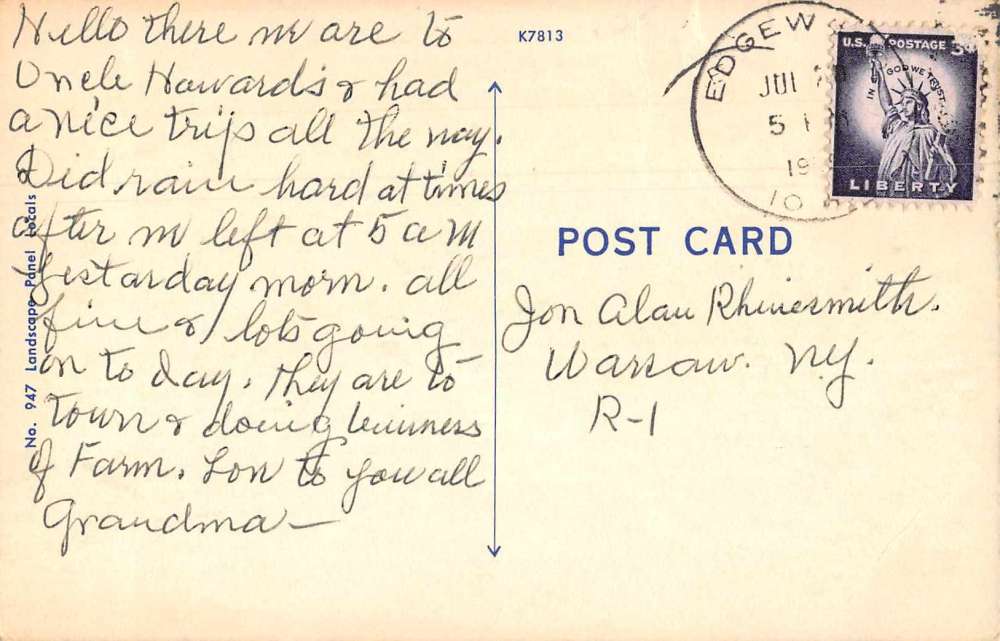 Hello there we are to
Uncle Howards & had
a nice trip all the way.
Did rain hard at times
after we left at 5 a M
Yestarday morn. all
fine & lots going
on to day. They are to
town & doing buinness
of Farm. Lov to you all
Grandma —
No. 947 Landscape Panel Locals
K7813
EDGEW
JUL
5
19
10
U.S. POSTAGE 3¢
IN GOD WE TRUST
LIBERTY
POST CARD
Jon Alan Rhinesmith.
Warsaw. N.Y.
R-1